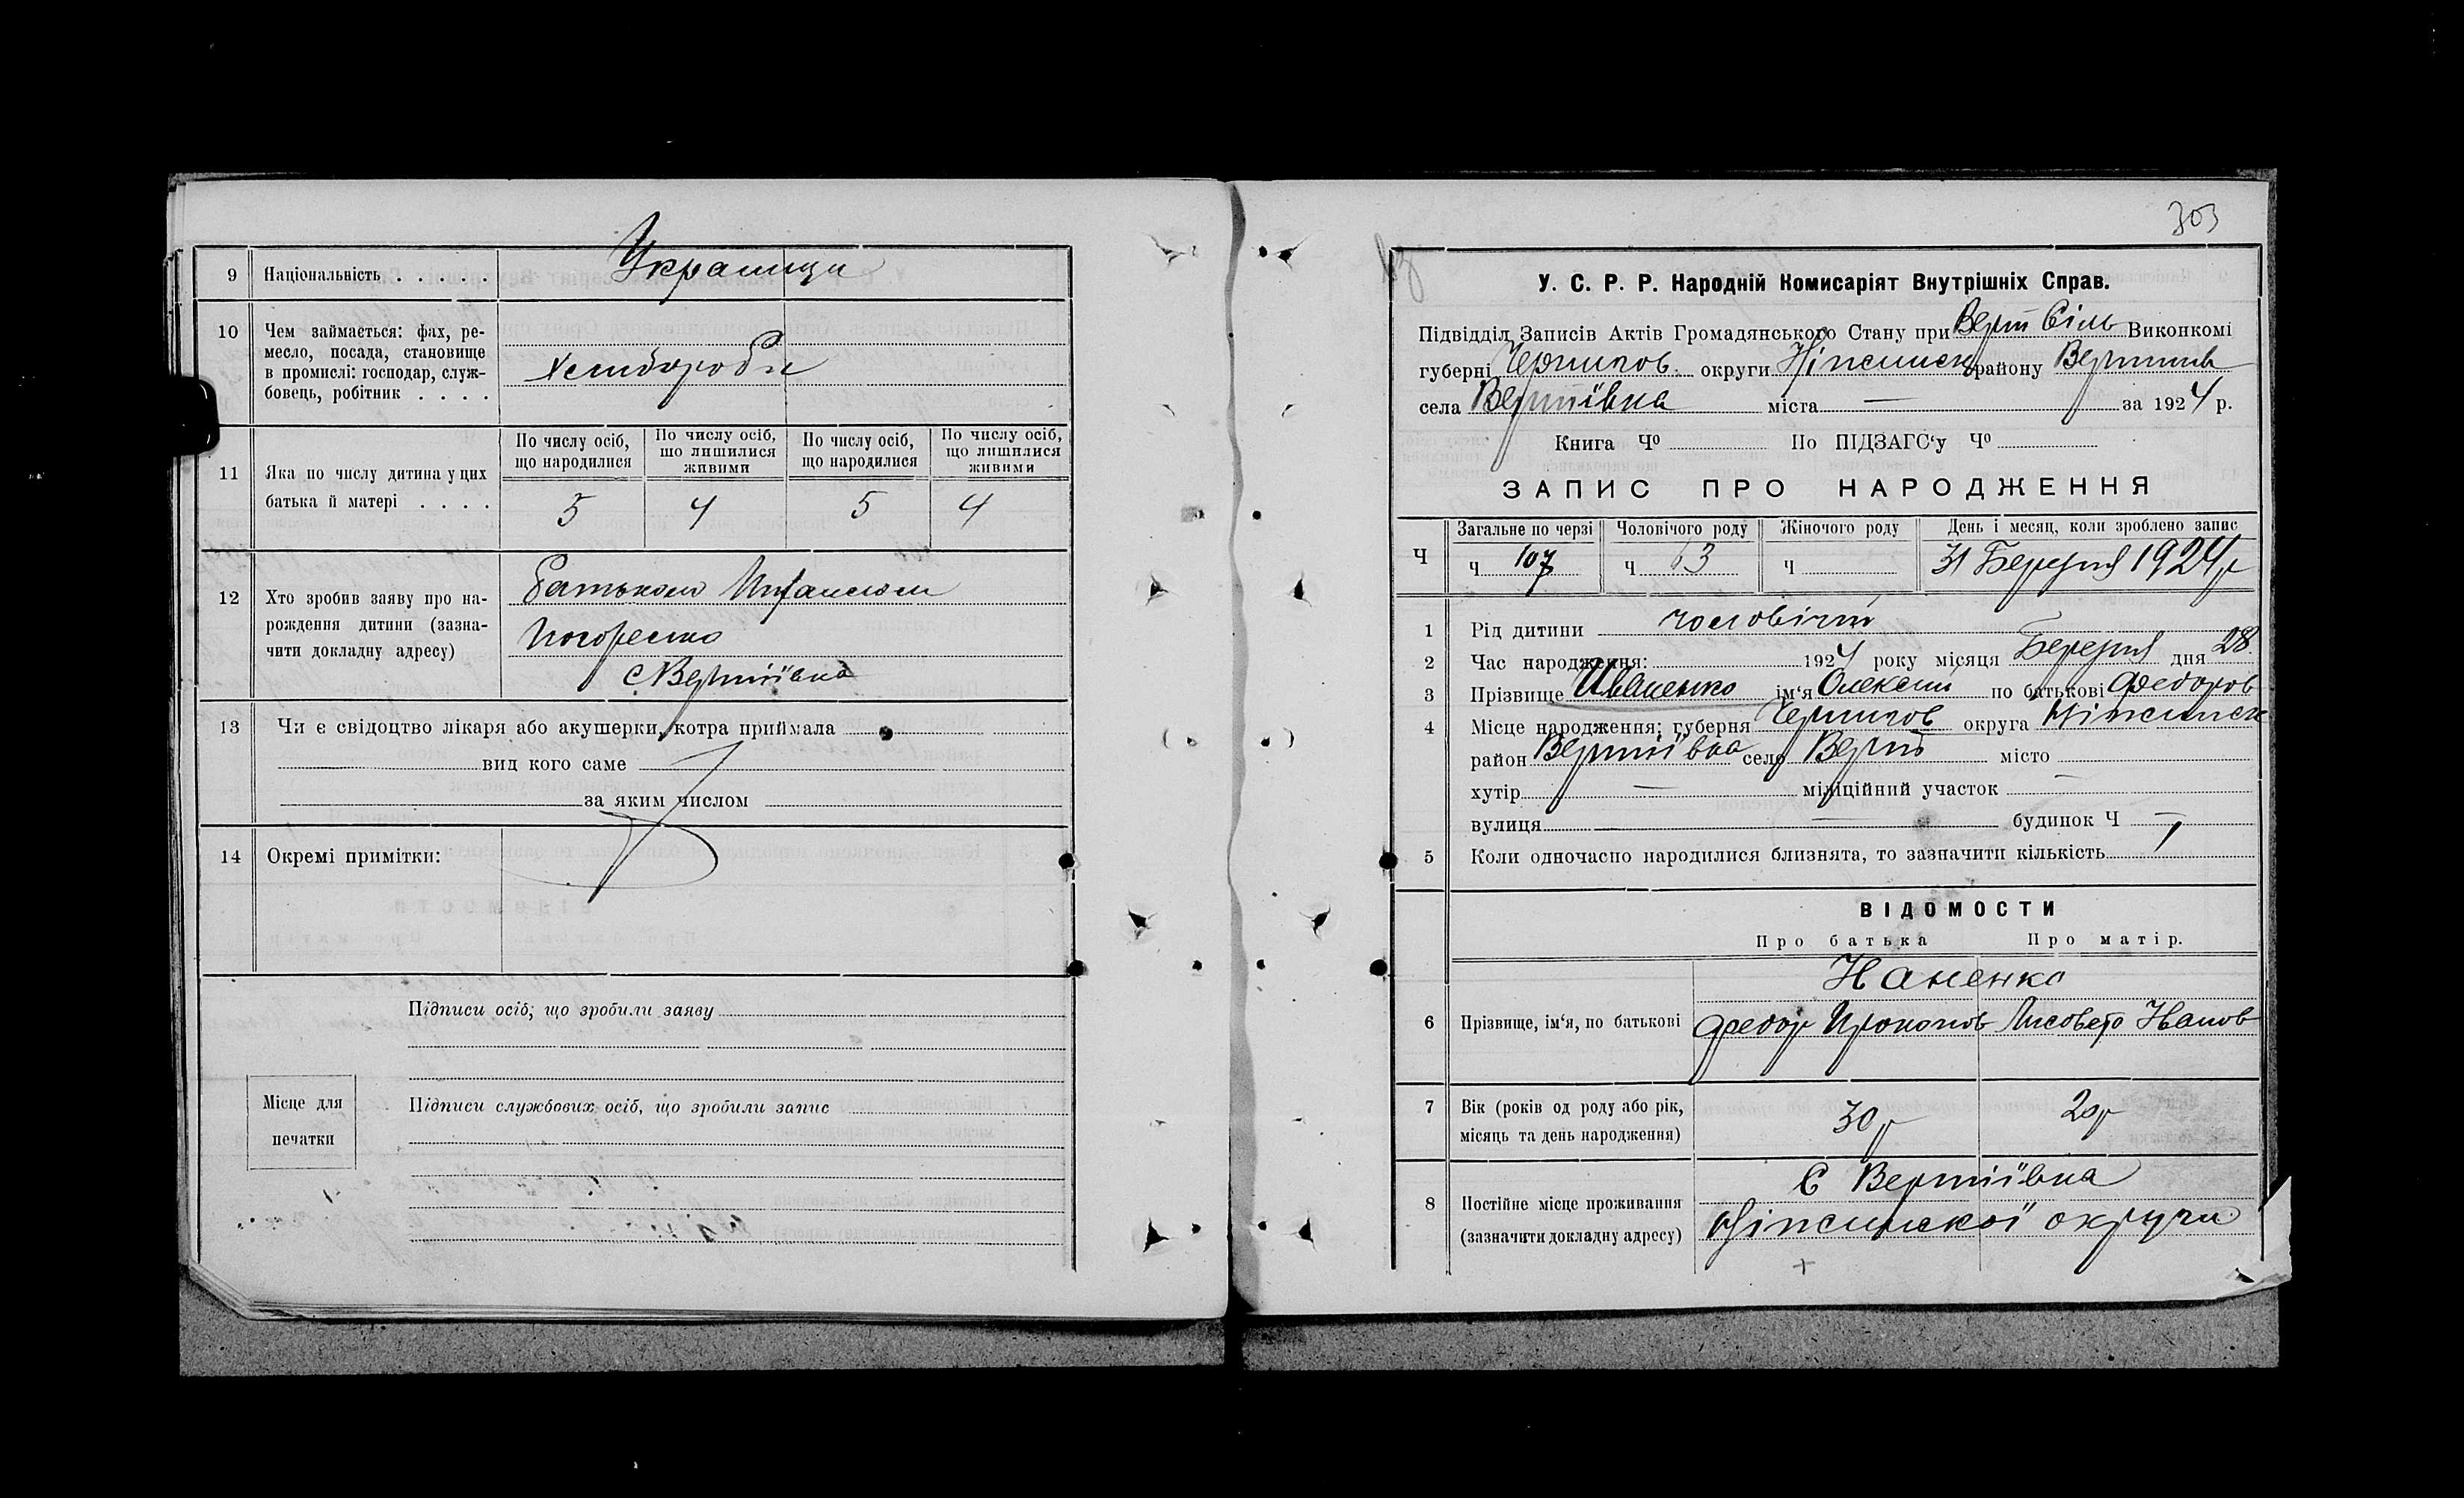 9 Національність . . . . . Украинци
10 Чем займається: фах, ре-
месло, посада, становище
в промислі: господар, служ-
бовець, робітник . . . .
Хлибороби
11 Яка по числу дитина у цих
батька й матері . . . .
По числу осіб, що народилися
По числу осіб, шо лишилися живими
По числу осіб, що народилися
По числу осіб, що лишилися живими
5 4 5 4
12 Хто зробив заяву про на-
рождення дитини (зазна-
чити докладну адресу)
Батьком
с Вертіївка
13 Чи є свідоцтво лікаря або акушерки, котра приймала
вид кого саме
за яким числом
14 Окремі примітки:
Підписи осіб, що зробили заяву
Місце для
печатки
Підписи службових осіб, що зробили запис
303
У. С. Р. Р. Народній Комисаріят Внутрішніх Справ.
Підвідділ Записів Актів Громадянського Стану при Верт Сіль Виконкомі
губерні Чернигов. округи Ніжинськ району
села Вертіївка міста — за 1924 р.
Книга Чº По ПІДЗАГС‘у Чº
ЗАПИС ПРО НАРОДЖЕННЯ
Ч
Загальне по черзі Чоловічого роду Жіночого роду День і месяц, коли зроблено запис
ч 107 ч 63 ч 31 Березня 1924 р
1 Рід дитини чоловічий
2 Час народження: 1924 року місяця Березня дня 28
3 Прізвище Иваненко ім‘я Олексій по батькові Федоров
4 Місце народження; губерня Чернигов округа Ніжинськ
район Вертіївка село Верт місто
хутір — міліційний участок —
вулиця — будинок Ч —
5 Коли одночасно народилися близнята, то зазначити кількість 1
ВІДОМОСТИ
Про батька Про матір.
6 Прізвище, ім‘я, по батькові
Федор Прокопов Лисовета Иванов
7 Вік (років од роду або рік,
місяць та день народження)
30 р 20 р
8 Постійне місце проживання
(зазначити докладну адресу)
С Вертіївка
Ніжинської округи